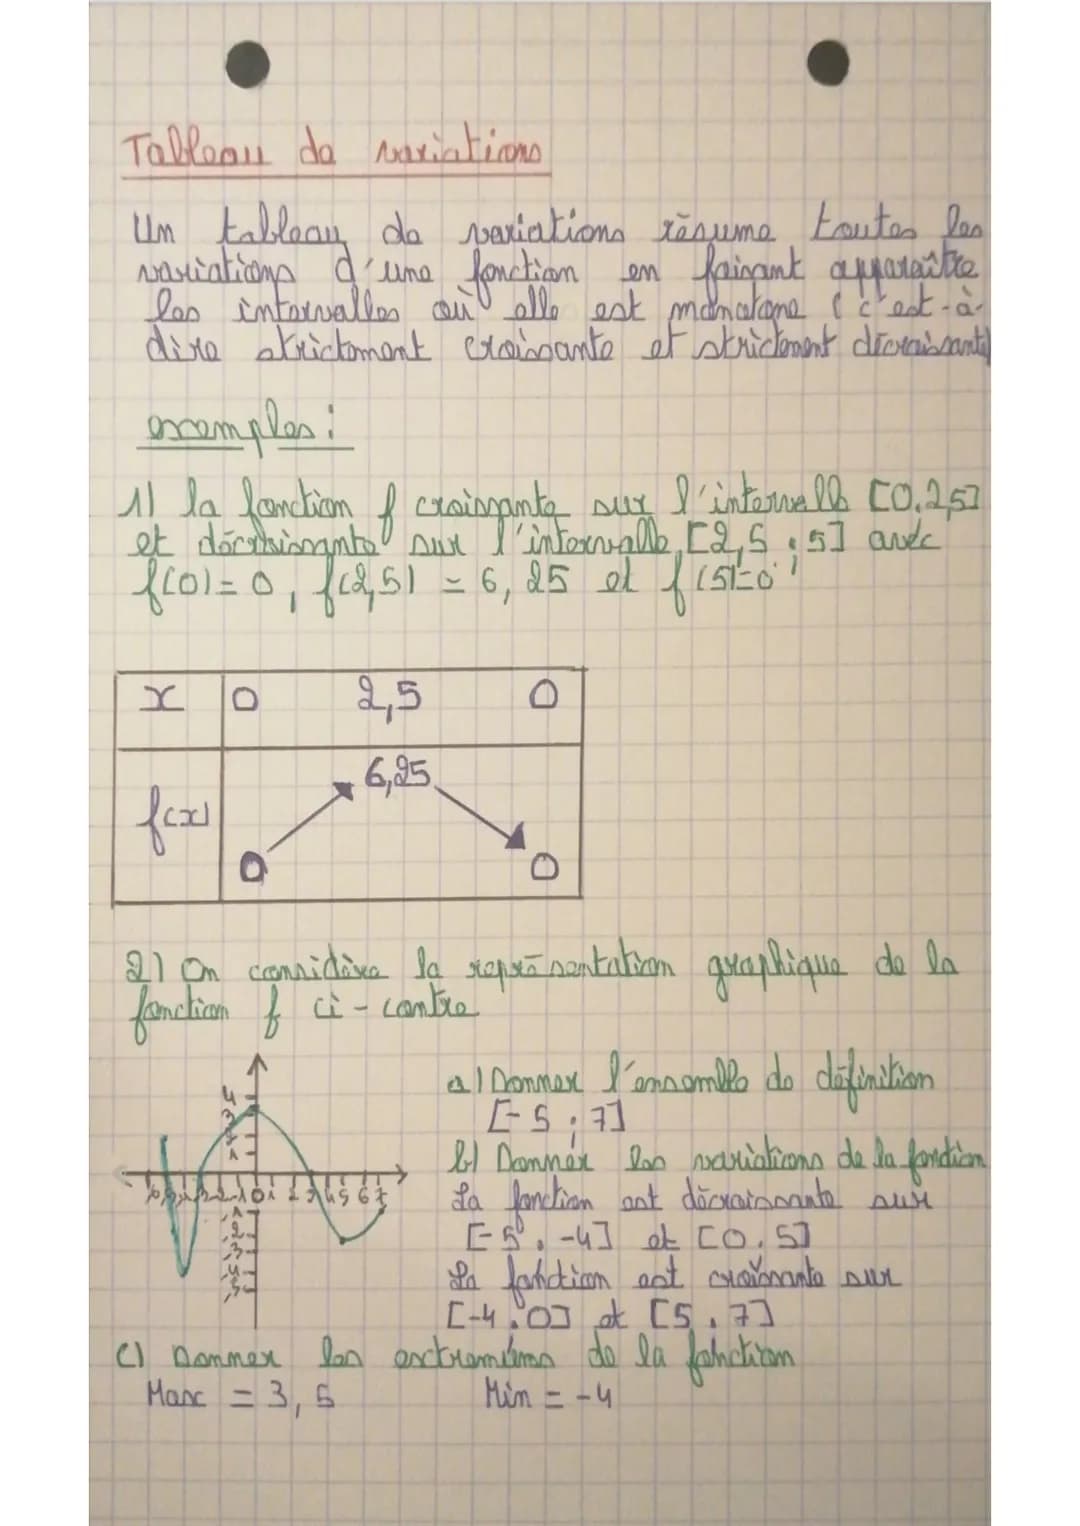 Tableau de variations
Un tableau de variations résume toutes les
variations d'une fonction en faisant apparaître
les intervalles où elle est monotone (c'est-à-
dire strictement croissante et strictement décroissante)
exemples :
1) la fonction f croissante sur l'intervalle [0.2,5]
et décroissante sur l'intervalle [2,5 ; 5] avec
f(0) = 0, f(2,5) = 6,25 et f(5)=0
x 0 2,5 0
6,25
f(x)
0 0
2) On considère la représentation graphique de la
fonction f ci-contre
a) Donner l'ensemble de définition
[-5 ; 7]
b) Donner les variations de la fonction
La fonction est décroissante sur
[-5 ; -4] et [0 ; 5]
La fonction est croissante sur
[-4 ; 0] et [5 ; 7]
c) Donner les extremums de la fonction
Max = 3,5 Min = -4